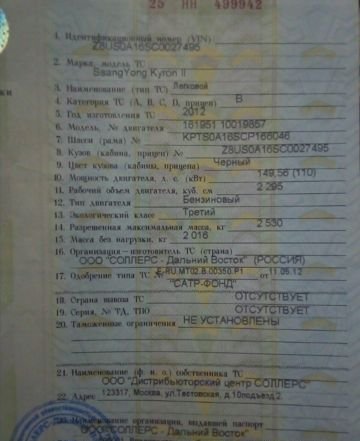 25 НН 499942
1. Идентификационный номер (VIN) Z8US0A16SC0027495
2. Марка, модель ТС SsangYong Kyron II
3. Наименование (тип ТС) Легковой
4. Категория ТС (A, B, C, D, прицеп) B
5. Год изготовления ТС 2012
6. Модель, № двигателя 161951 10019857
7. Шасси (рама) № KPTS0A16SCP166046
8. Кузов (кабина, прицеп) № Z8US0A16SC0027495
9. Цвет кузова (кабины, прицепа) Черный
10. Мощность двигателя, л. с. (кВт) 149,56 (110)
11. Рабочий объем двигателя, куб. см 2 295
12. Тип двигателя Бензиновый
13. Экологический класс Третий
14. Разрешенная максимальная масса, кг 2 530
15. Масса без нагрузки, кг 2 016
16. Организация – изготовитель ТС (страна)
ООО "СОЛЛЕРС - Дальний Восток" (РОССИЯ)
17. Одобрение типа ТС № E-RU.MT02.B.00350.P1 от 11.05.12
"САТР-ФОНД"
18. Страна вывоза ТС ОТСУТСТВУЕТ
19. Серия, № ТД, ТПО ОТСУТСТВУЕТ
20. Таможенные ограничения НЕ УСТАНОВЛЕНЫ
21. Наименование (ф. и. о.) собственника ТС
ООО "Дистрибьюторский центр СОЛЛЕРС"
22. Адрес 123317, Москва, ул.Тестовская, д.10подъезд 2.
23. Наименование организации, выдавшей паспорт
ООО "СОЛЛЕРС - Дальний Восток"